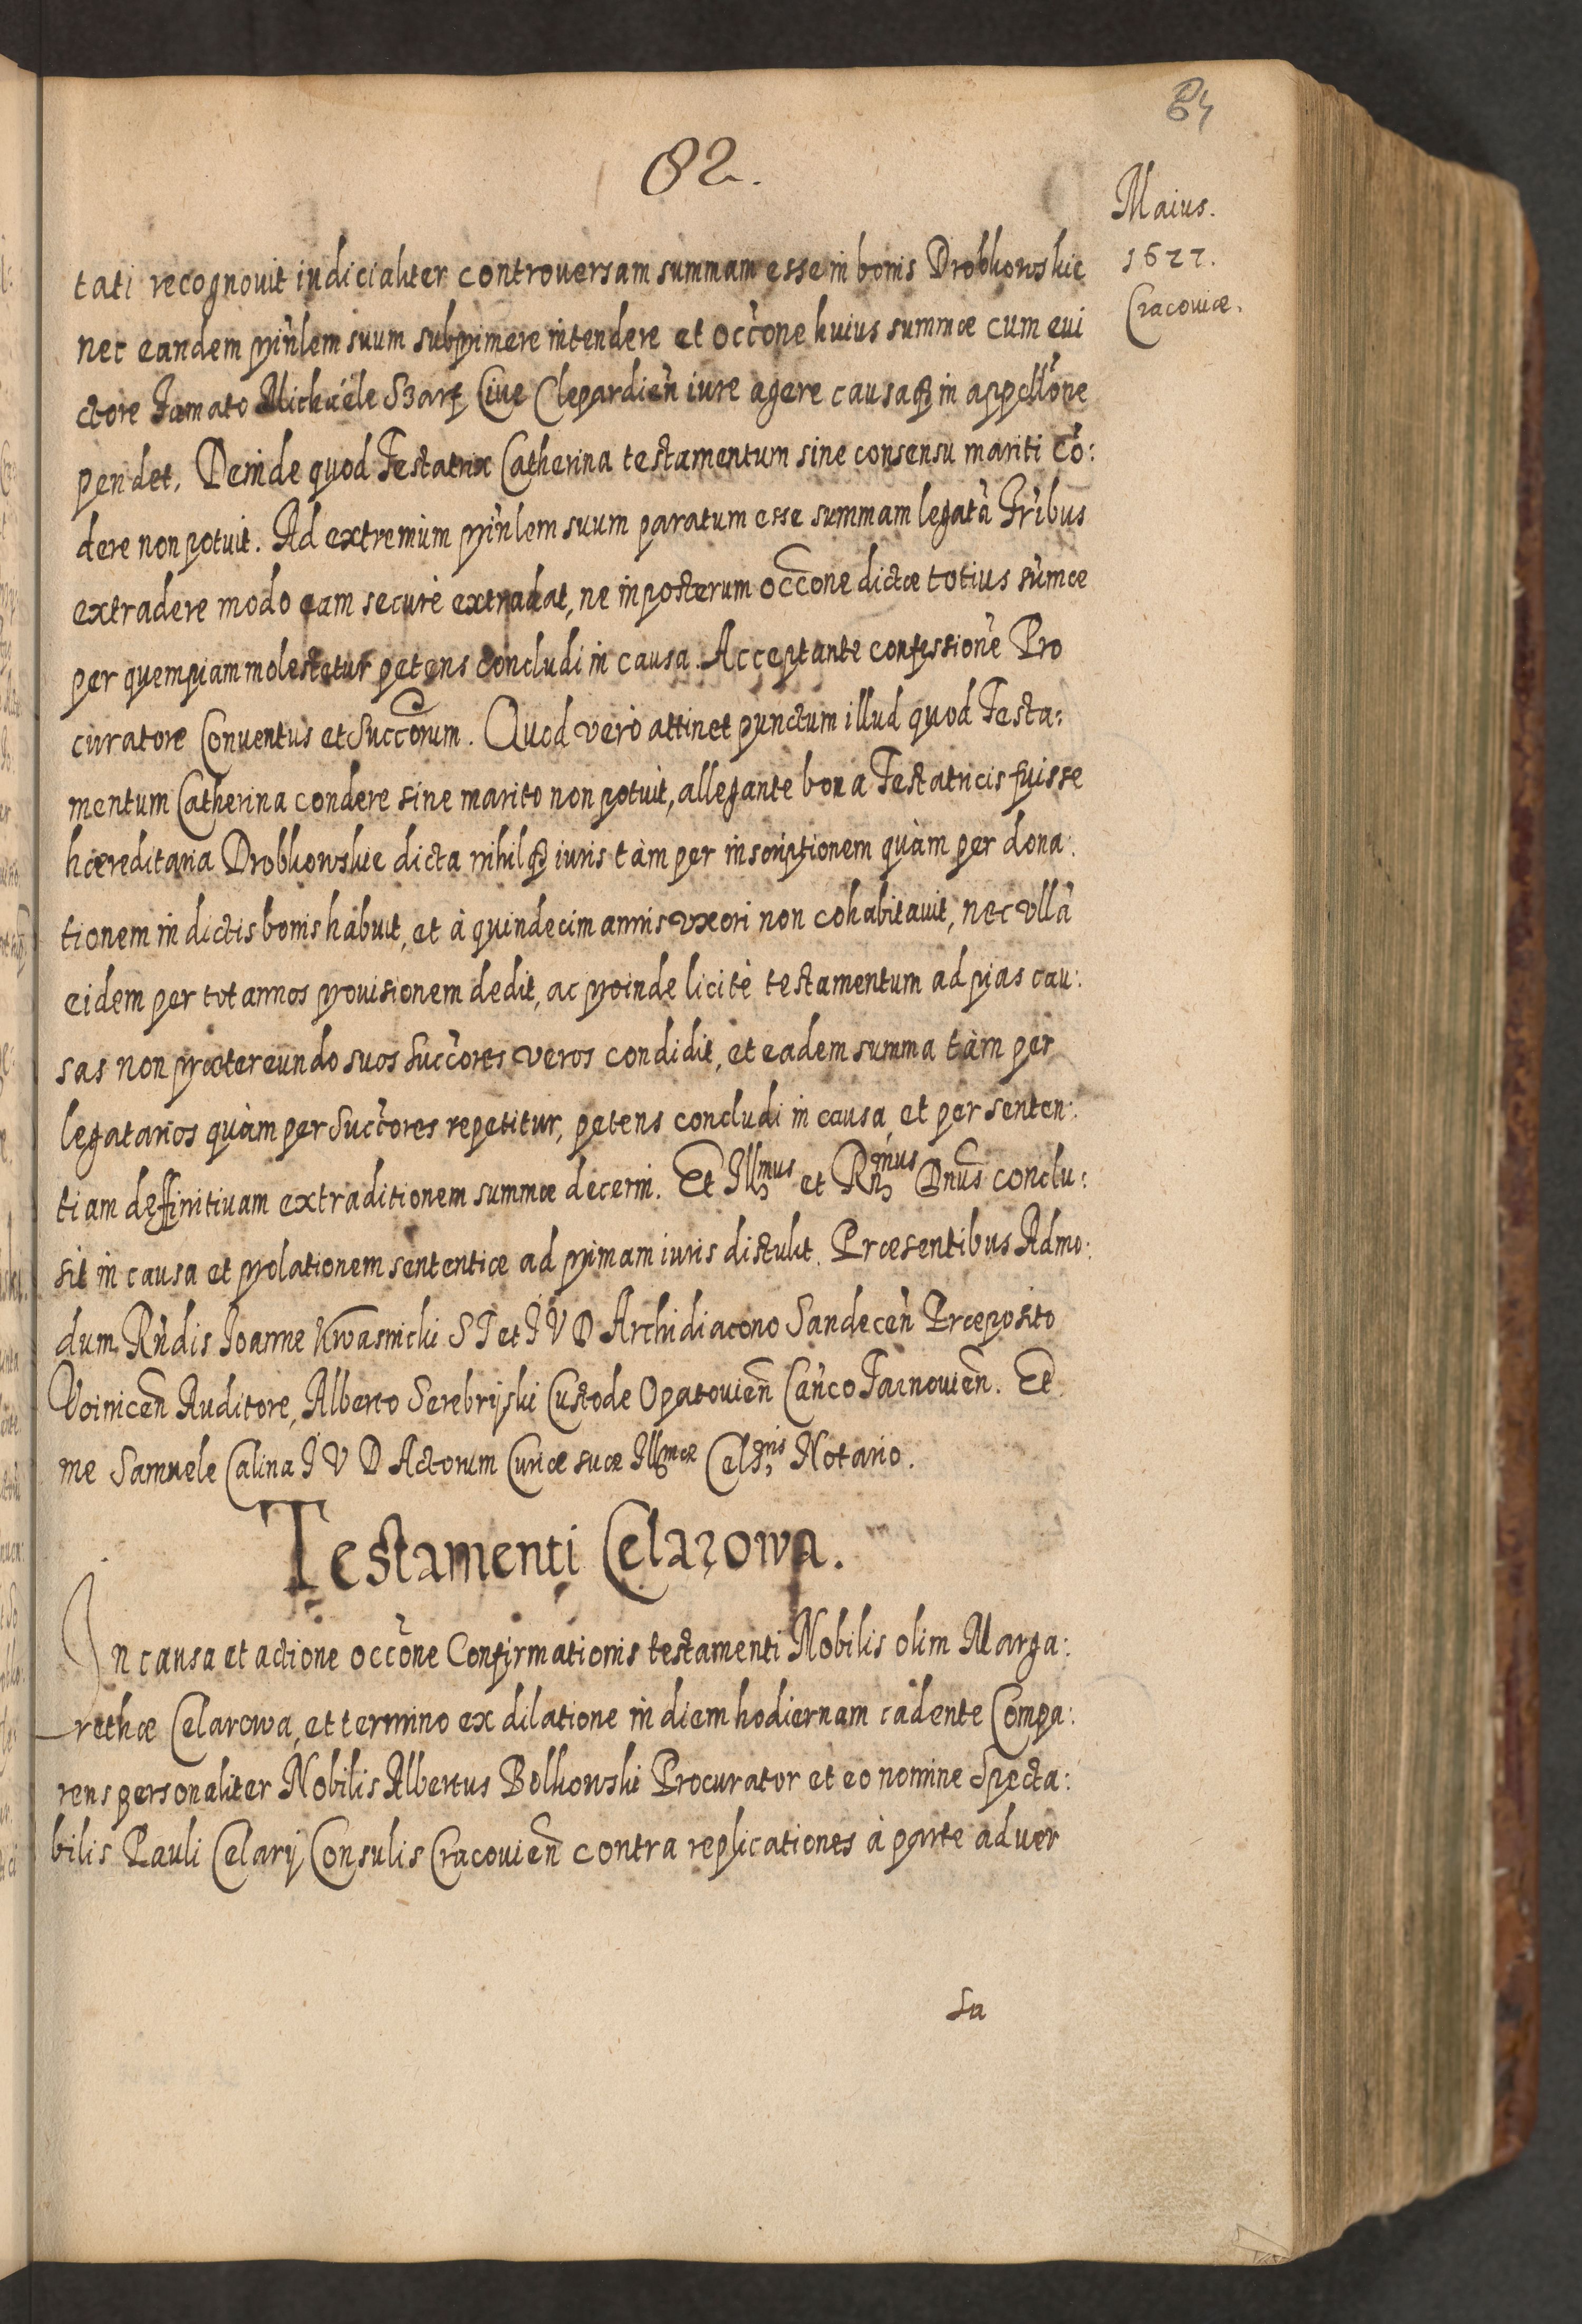 84
82.
Maius.
1622.
Cracoviæ.
tati recognovit iudicialiter controversam summam esse in bonis Drobkowskie
nec eandem pri̇nlem suum subprimere intendere et occ̃one huius summæ cum evi
ctore Famato Michaële Szarf Cive Clepardien̄ iure agere causaqȝ in appell̃one
pendet. Deinde quod Testatrix Catherina testamentum sine consensu mariti cõ:
dere non potuit. Ad extremum prin̄lem suum paratum esse summam legatã Fr̃ibus
extradere modo eam securè extradat, ne inposterum occ̃one dictæ totius sum̃æ
per quempiam molestetur petens concludi in causa. Acceptante confessionẽ Pro
curatore Conventus et Succ̃orum. Quod verò attinet punctum illud quod Testa:
mentum Catherina condere sine marito non potuit, allegante bona Testatricis fuisse
hæreditaria Drobkowskie dicta nihilqȝ iuris tàm per inscriptionem quàm per dona:
tionem in dictis bonis habuit, et à quindecim annis vxori non cohabitavit, nec vllã
eidem per tot annos provisionem dedit, ac proinde licitè testamentum ad pias cau:
sas non prætereundo suos Succ̃ores veros condidit, et eadem summa tàm per
legatarios quàm per Succ̃ores repetitur, petens concludi in causa, et per senten:
tiam deffinitivam extraditionem summæ decerni. Et Illmus et Rn̄mus Dnus̃ conclu:
sit in causa et prolationem sententiæ ad primam iuris distulit. Præsentibus Admo:
dum Rn̄dis Ioanne Kwasnicki S T et I V D Archidiacono Sandecen̄ Præposito
Voinicen̄ Auditore, Alberto Serebryski Custode Opatovien̄ Can̄co Tarnovien̄. Et
me Samuele Calina I V D Actorum Curiæ suæ Illmæ Celsnis Notario.
Testamenti Celarowa.
In causa et actione occ̃one Confirmationis testamenti Nobilis olim Marga:
rethæ Celarowa, et termino ex dilatione in diem hodiernam cadente Compa:
rens personaliter Nobilis Albertus Bolkowski Procurator et eo nomine Specta:
bilis Pauli Celarij Consulis Cracovien̄ contra replicationes à parte adver
sa